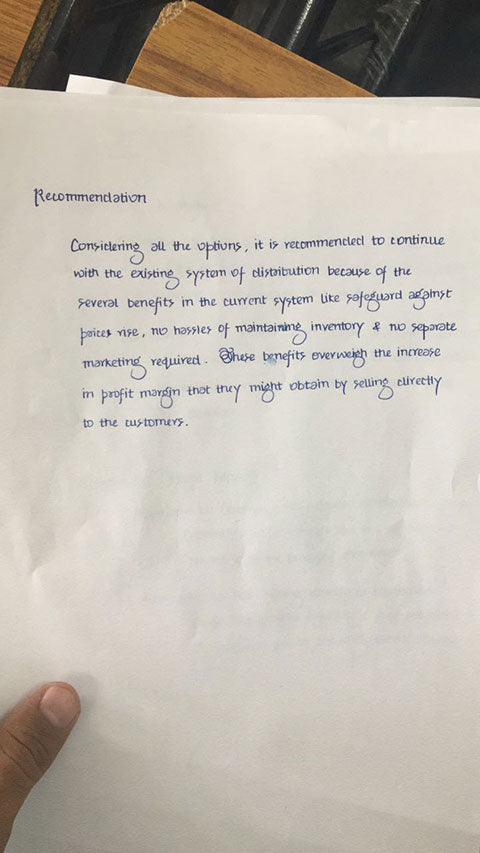 Recommendation
Considering all the options, it is recommended to continue
with the existing system of distribution because of the
several benefits in the current system like safeguard against
prices rise, no hassles of maintaining inventory & no separate
marketing required. These benefits overweigh the increase
in profit margin that they might obtain by selling directly
to the customers.